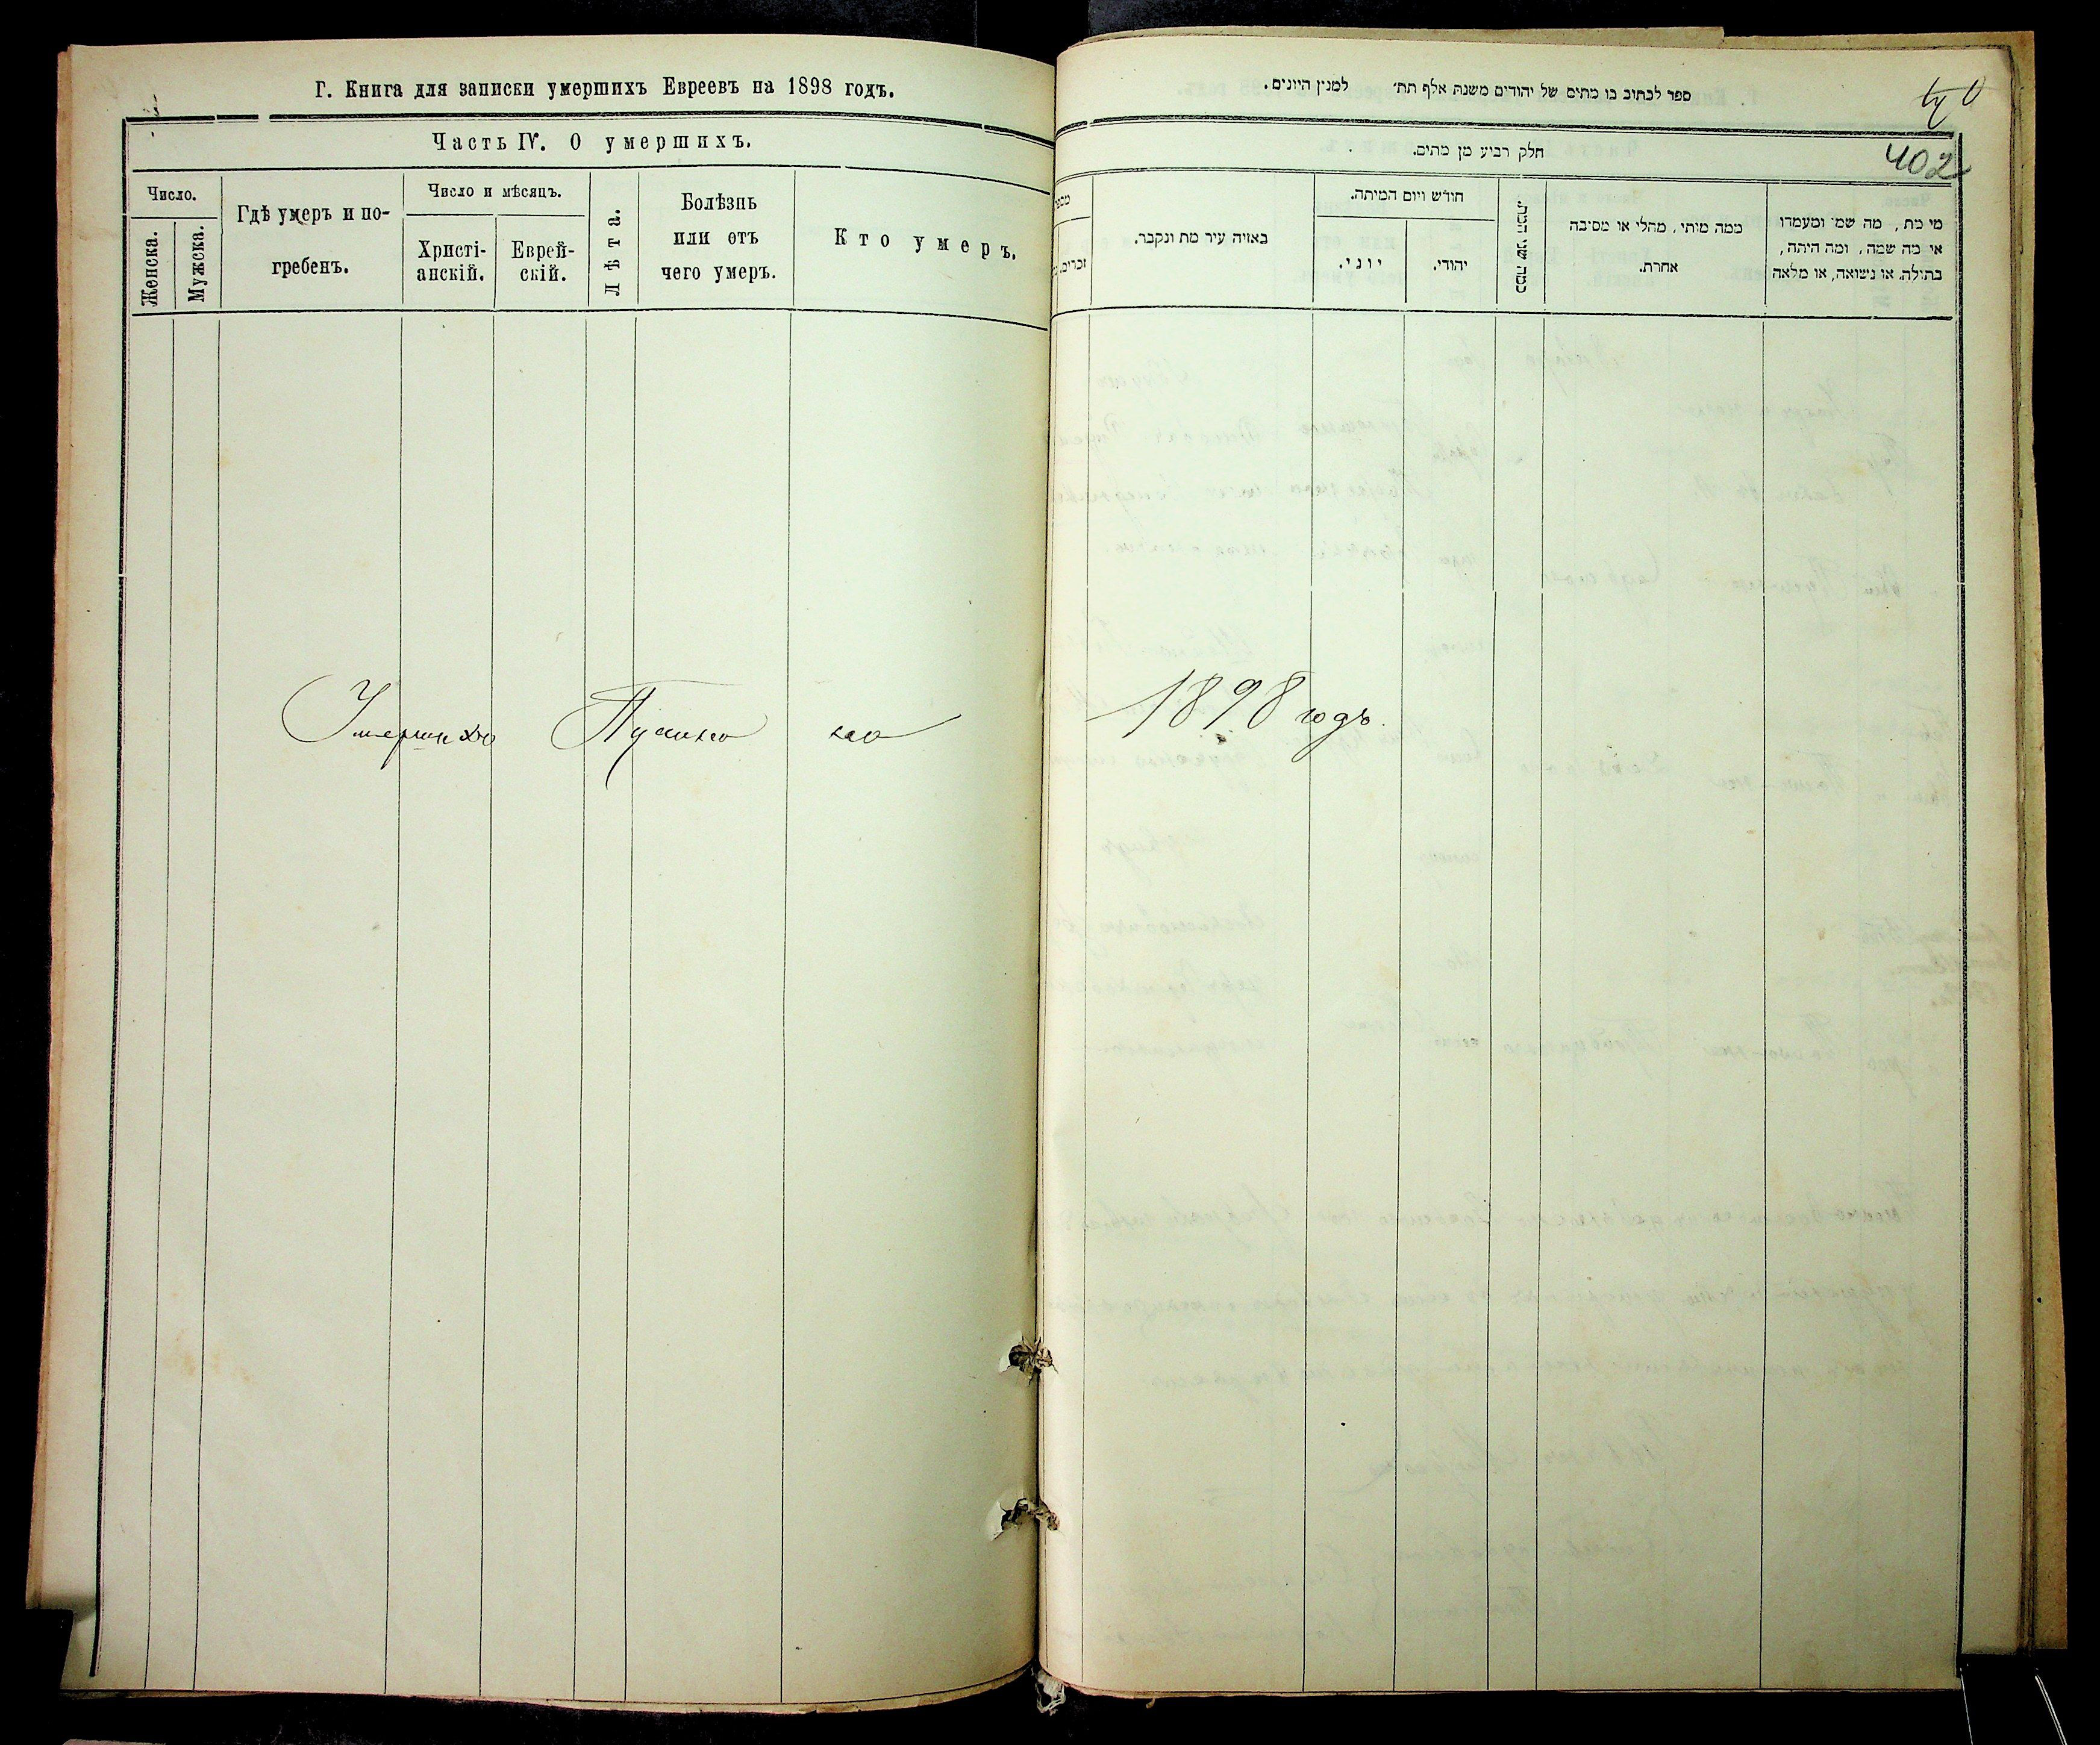 Г. Книга для записки умершихъ Евреевъ на 1898 годъ.
Часть IV. О умершихъ.
Число.
Женска.
Мужска.
Гдѣ умеръ и по-
гребенъ.
Число и мѣсяцъ.
Христі-
анскій.
Еврей-
скій.
Лѣта.
Болѣзнь
или отъ
чего умеръ.
Кто умеръ.
ספר לכתוב בו מתים של יהודים משנת אלף תת׳ למנין היונים.
402
חלק רביע מן מתים.
זכרים.
באיזה עיר מת ונקבר.
חודש ויום המיתה.
יוני.
יהודי.
כמה שני חייו.
ממה מיתי, מחלי או מסיבה
אחרת.
מי מת, מה שמו ומעמדו
או מה שמה, ומה היתה,
בתולה, או נשואה, או מלאה
1898 годъ.